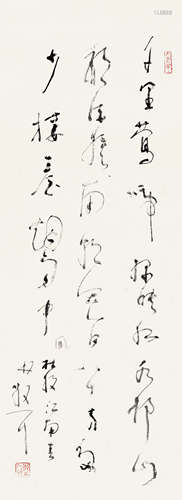 千里鶯啼绿映红水邨山
郭酒旗风南朝四百八十寺多
少楼臺烟雨中
杜牧江南春
林散耳